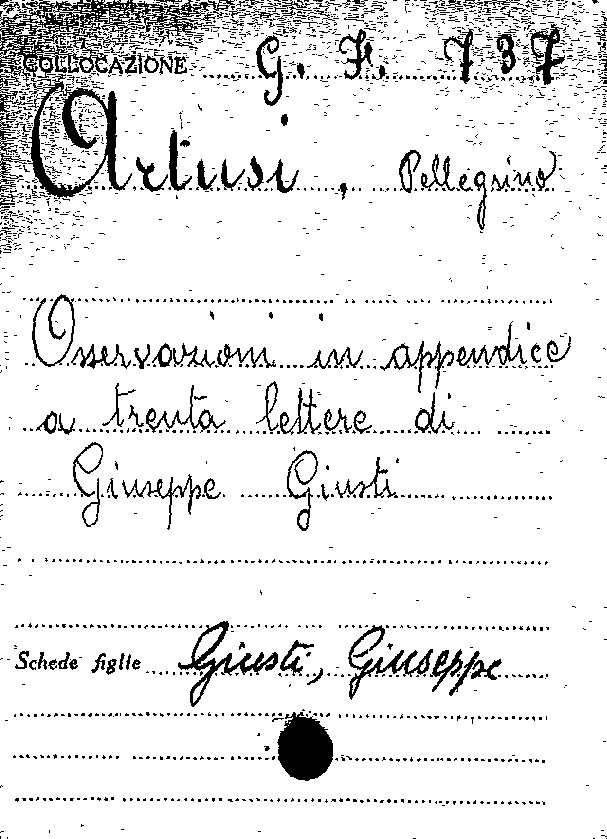 COLLOCAZIONE G. F. 737
Artusi, Pellegrino
Osservazioni in appendice
a trenta lettere di
Giuseppe Giusti
Schede figlie Giusti, Giuseppe